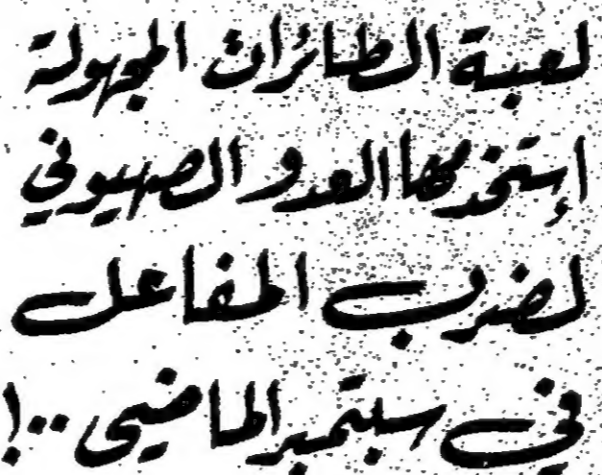 لعبة الطائرات المجهولة
إستخدمها العدو الصهيوني
لضرب المفاعل
فى سبتمبر الماضى ..!